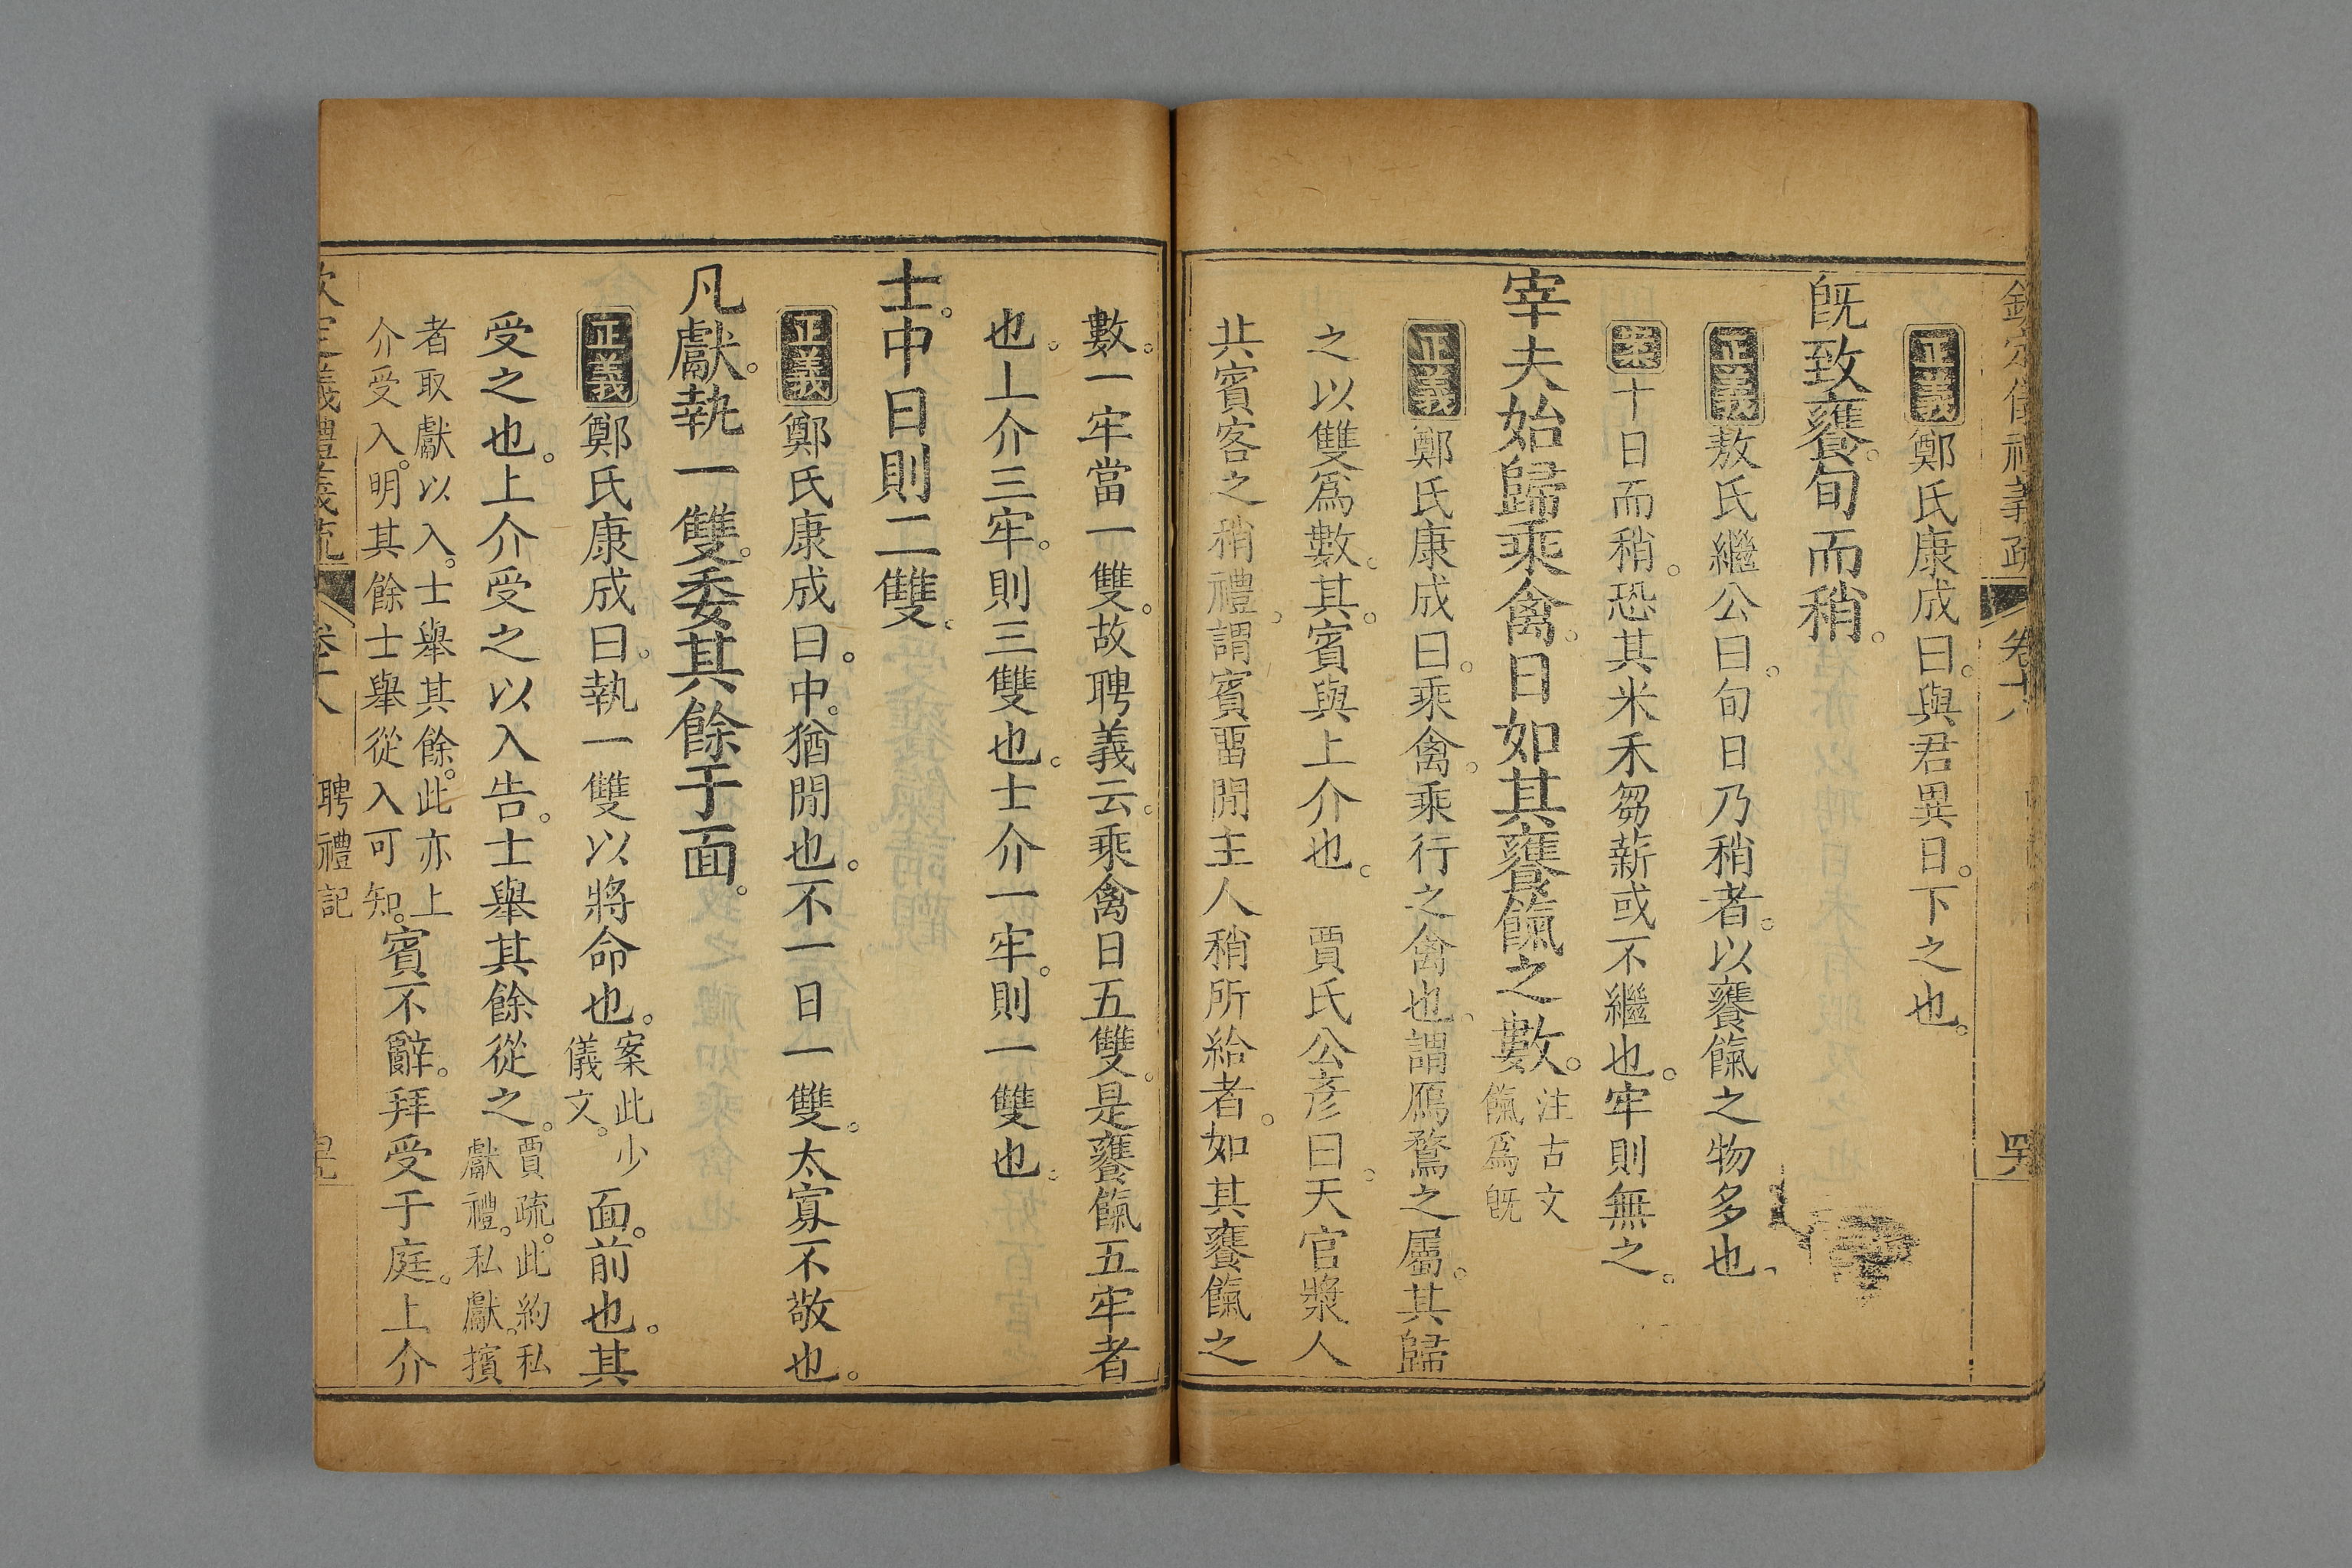 欽定儀禮義疏 卷十八
正義鄭氏康成曰。與君異日。下之也。
旣致饔。旬而稍。
正義敖氏繼公曰。旬日乃稍者。以饔餼之物多也。
案十日而稍。恐其米禾芻薪或不繼也。牢則無之。
宰夫始歸乘禽。日如其饔餼之數。注古文餼爲旣
正義鄭氏康成曰。乘禽。乘行之禽也。謂鴈鶩之屬。其歸
之以雙爲數。其。賓與上介也。 賈氏公彥曰。天官漿人
共賓客之稍禮。謂賓畱閒主人稍所給者。如其饔餼之
數。一牢當一雙。故聘義云。乘禽日五雙。是饔餼五牢者
也。上介三牢。則三雙也。士介一牢。則一雙也。
士。中日則二雙。
正義鄭氏康成曰。中。猶閒也。不一日一雙。太寡不敬也。
凡獻。執一雙。委其餘于面。
正義鄭氏康成曰。執一雙以將命也。案此少儀文。面。前也。其
受之也。上介受之以入告。士舉其餘從之。賈疏。此約私獻禮。私獻。擯
者取獻以入。士舉其餘。此亦上
介受入。明其餘士舉從入可知。賓不辭。拜受于庭。上介
欽定義禮義疏 卷十八 聘禮記